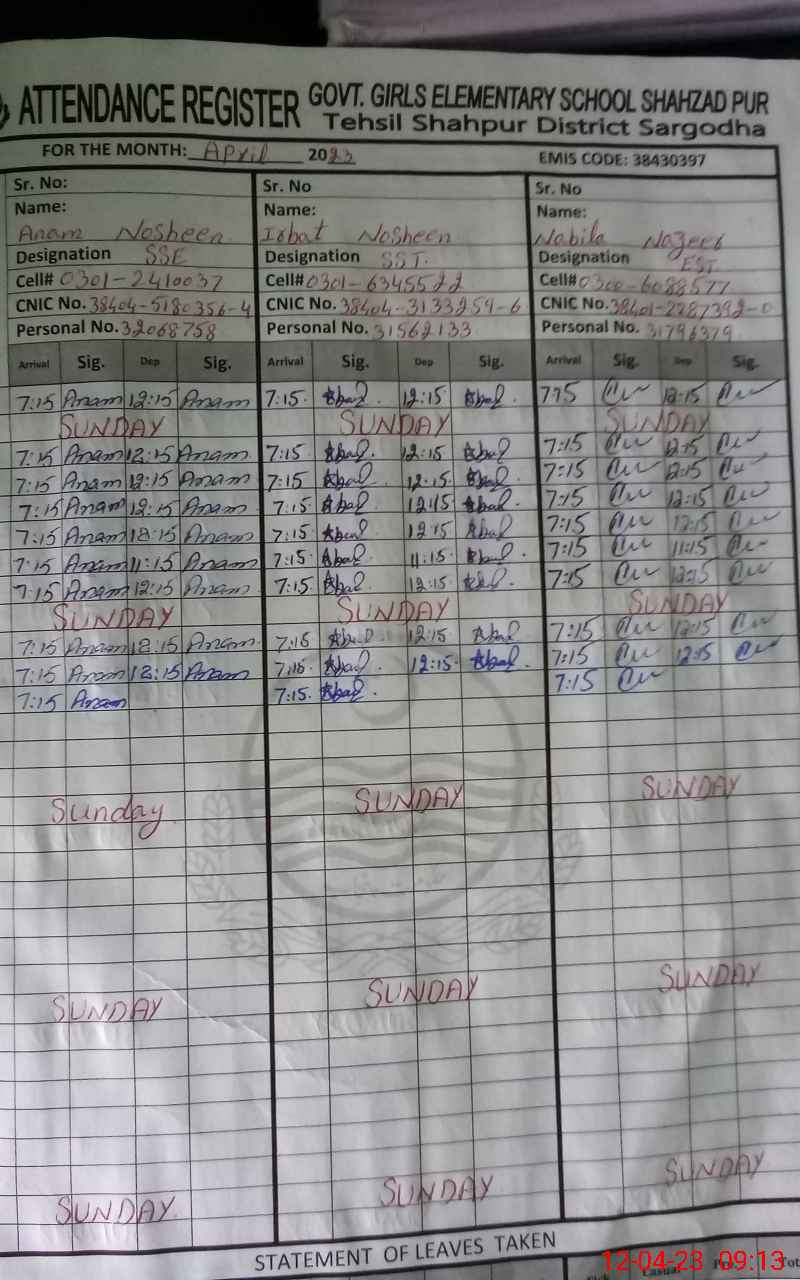 ATTENDANCE REGISTER GOVT. GIRLS ELEMENTARY SCHOOL SHAHZAD PUR
Tehsil Shahpur District Sargodha
FOR THE MONTH: April 2023 EMIS CODE: 38430397
Sr. No: Sr. No Sr. No
Name: Name: Name:
Anam Nosheen Iqbat Nosheen Nabila Nazeer
Designation SSE Designation SST. Designation EST
Cell# 0301-2410037 Cell# 0301-6345522 Cell# 0300-6088577
CNIC No. 38404-5180356-4 CNIC No. 38404-3133259-6 CNIC No. 38401-2287392-0
Personal No. 32068758 Personal No. 31562133 Personal No. 31796379
Arrival Sig. Dep Sig. Arrival Sig. Dep Sig. Arrival Sig. Dep Sig.
7:15 Anam 12:15 Anam 7:15 12:15 7:15 12:15
SUNDAY SUNDAY SUNDAY
7:15 Anam 12:15 Anam 7:15 12:15 7:15 12:15
7:15 Anam 12:15 Anam 7:15 12:15 7:15 12:15
7:15 Anam 12:15 Anam 7:15 12:15 7:15 12:15
7:15 Anam 12:15 Anam 7:15 12:15 7:15 12:15
7:15 Anam 11:15 Anam 7:15 11:15 7:15 11:15
7:15 Anam 12:15 Anam 7:15 12:15 7:15 12:15
SUNDAY SUNDAY SUNDAY
7:15 Anam 12:15 Anam 7:15 12:15 7:15 12:15
7:15 Anam 12:15 Anam 7:15 12:15 7:15 12:15
7:15 Anam 7:15 7:15
Sunday SUNDAY SUNDAY
SUNDAY SUNDAY SUNDAY
SUNDAY SUNDAY SUNDAY
STATEMENT OF LEAVES TAKEN
12-04-23 09:13